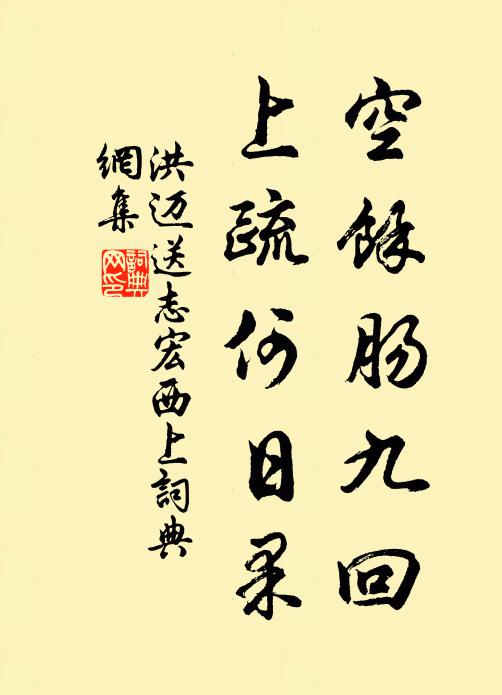 空馀肠九回
上疏何日果
洪迈送志宏西上詞典
網集
詞典
网印